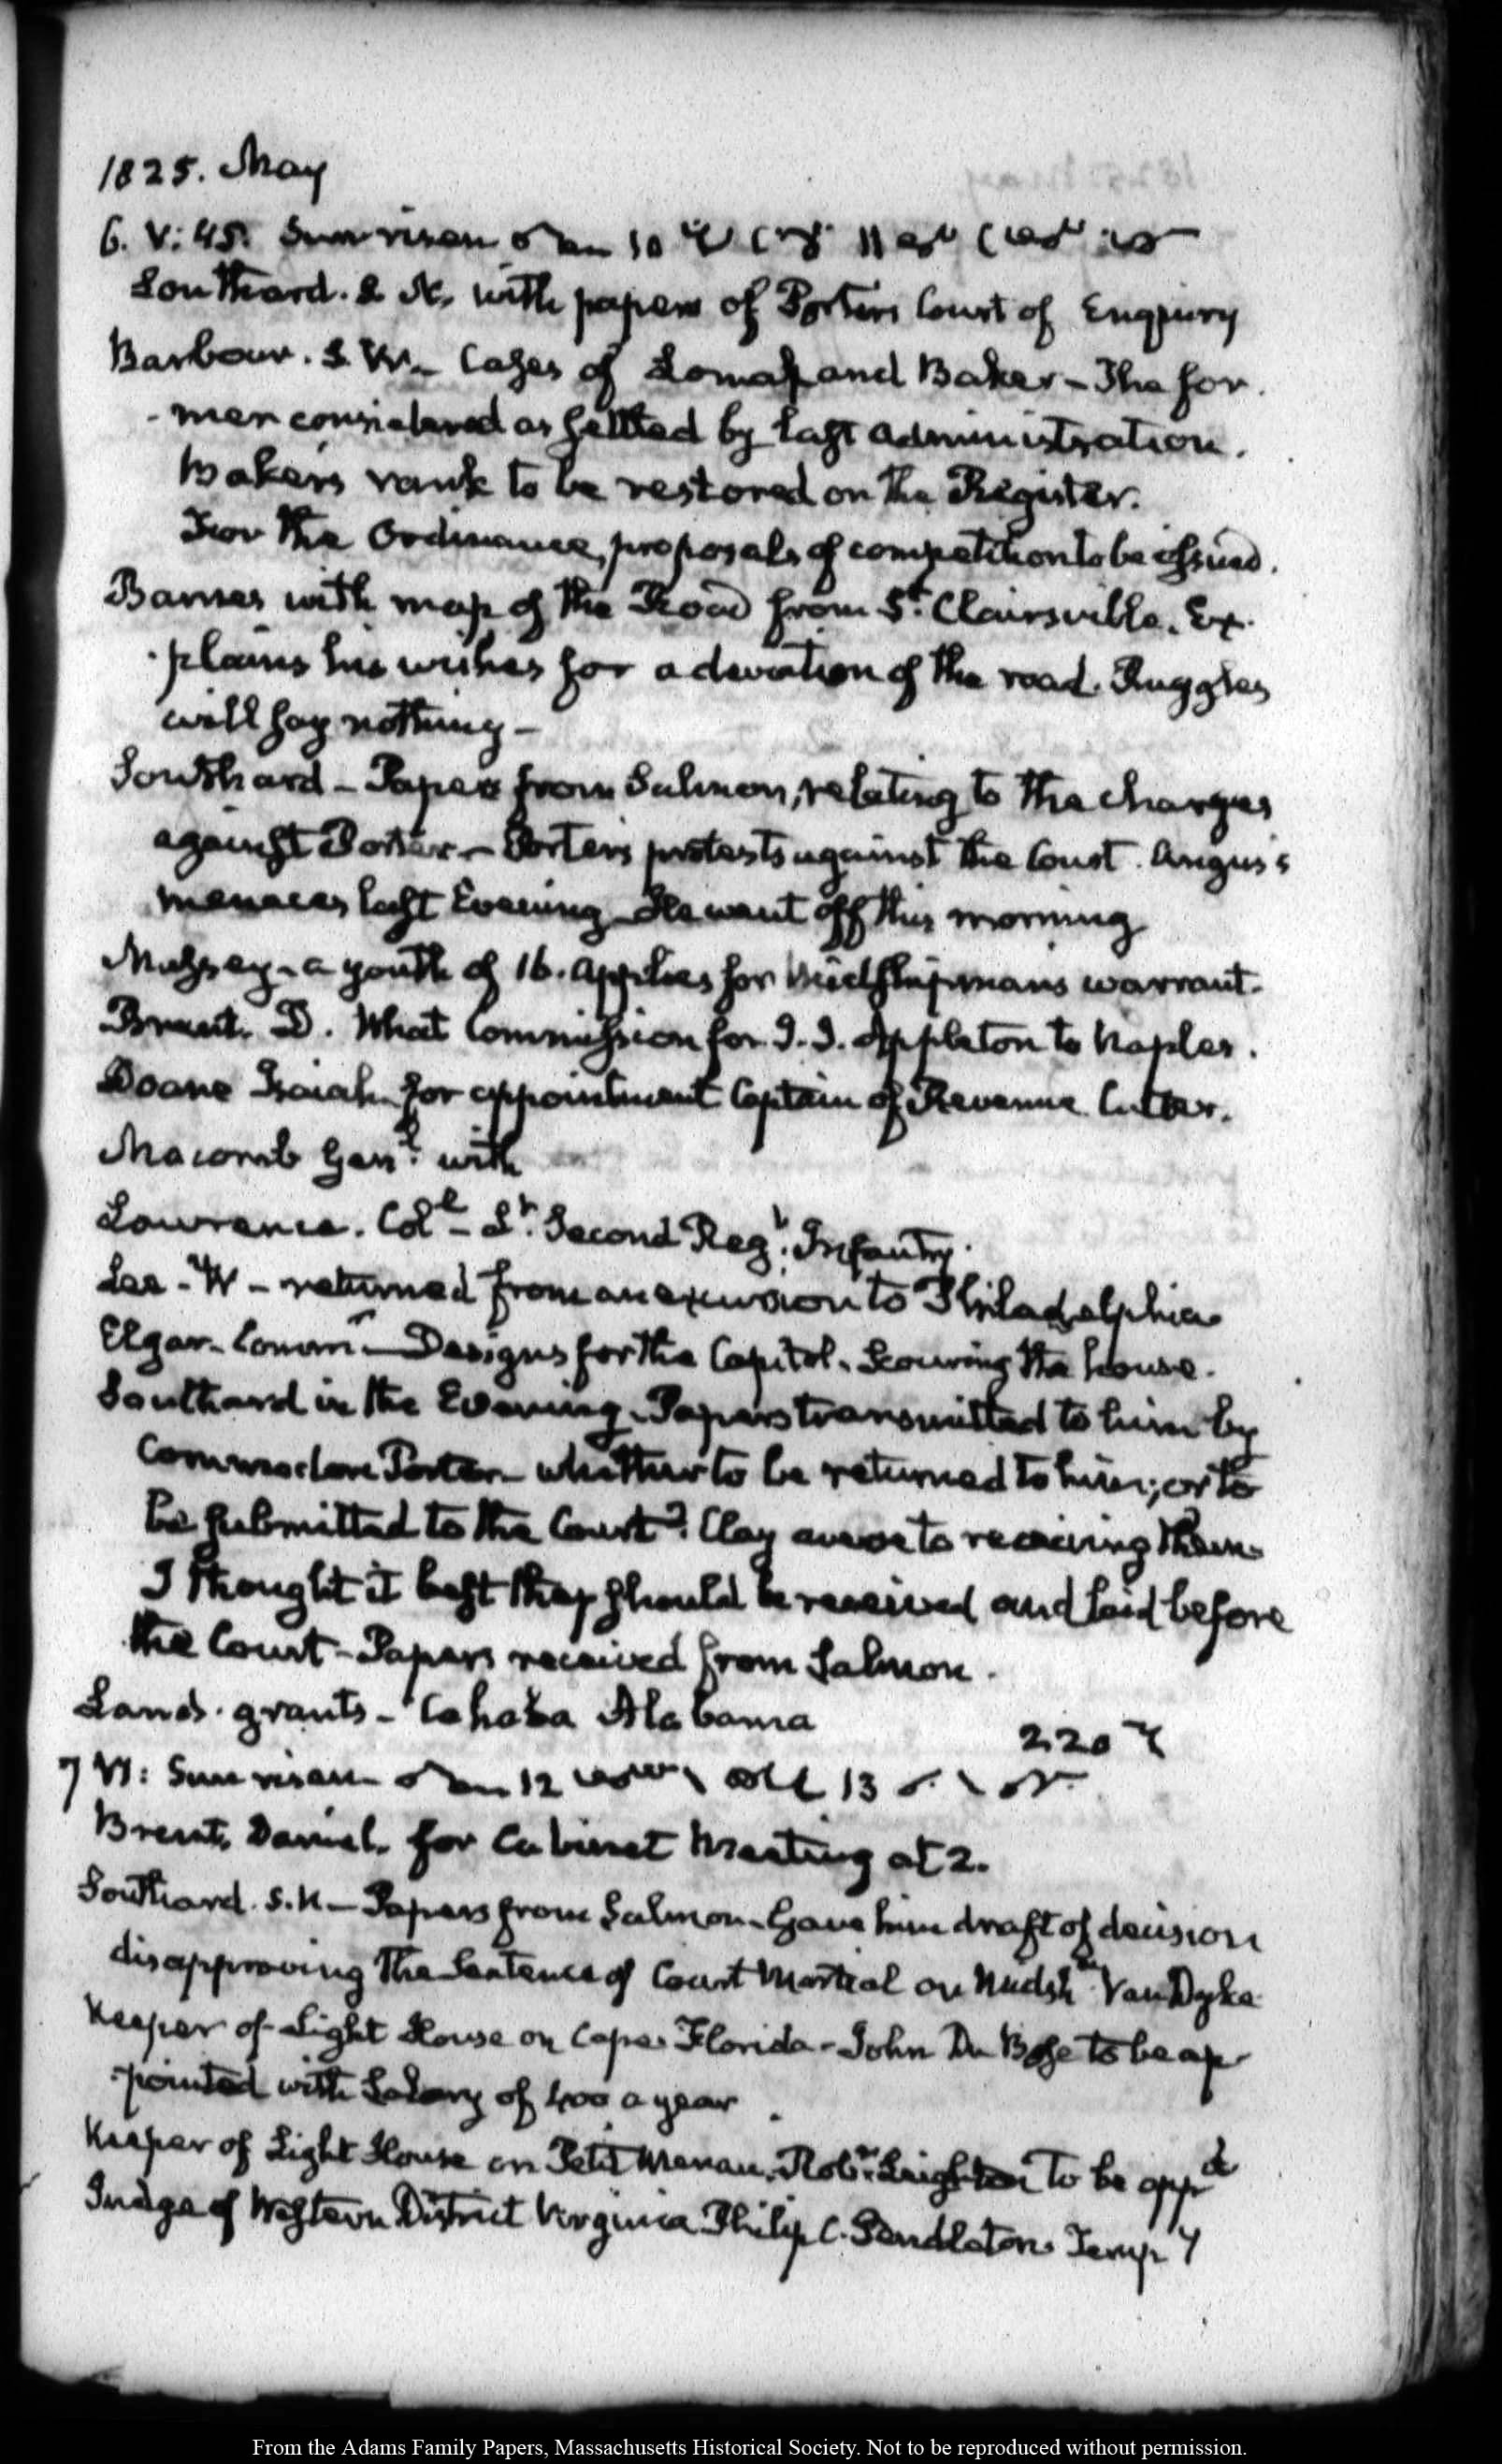 1825. May
6. V: 45. Sun risen 10 11
Southard. S. N. with papers of Porters Court of Enquiry
Barbour. S. W. Cases of Lomax and Baker - The for
-mer considered as settled by last administration.
Bakers rank to be restored on the Register.
For the Ordinance, proposals of competition to be issued.
Barnes with map of the Road from St. Clairsville. Ex-
-plains his wishes for a deviation of the road. Ruggles
will say nothing -
Southard - Papers from Salmon, relating to the charges
against Porter - Porters protests against the Court. Angus's
menaces last Evening He went off this morning
a youth of 16. applies for Midshipmans warrant.
Brent. D. What Commission for J. J. Appleton to Naples.
Doane Isaiah for appointment Captain of Revenue Cutter.
Macomb Genl. with
Lawrence. Coll - Lt. Second Regt. Infantry.
Lee - W - returned from an excursion to Philadelphia
Elgar. Commr - Designs for the Capitol. Scouring the house.
Southard in the Evening. Papers transmitted to him by
Commodore Porter - whether to be returned to him; or to
be submitted to the Court? Clay averse to receiving them
I thought it best they should be received and laid before
the Court - Papers received from Salmon.
Lands. grants - Cahaba Alabama
220
7 VI: Sun risen 12 13
Brent, Daniel. for Cabinet Meeting at 2.
Southard. S. N - Papers from Salmon. Gave him draft of decision
disapproving the Sentence of Court Martial on Midshn Van Dyke
Keeper of Light House on Cape Florida - John Du Bose to be ap
-pointed with Salary of 400 a year
Keeper of Light House on Petit Manan. Robt. Leighton to be appd
Judge of Western District Virginia Philip C. Pendleton. Tempy
From the Adams Family Papers, Massachusetts Historical Society. Not to be reproduced without permission.